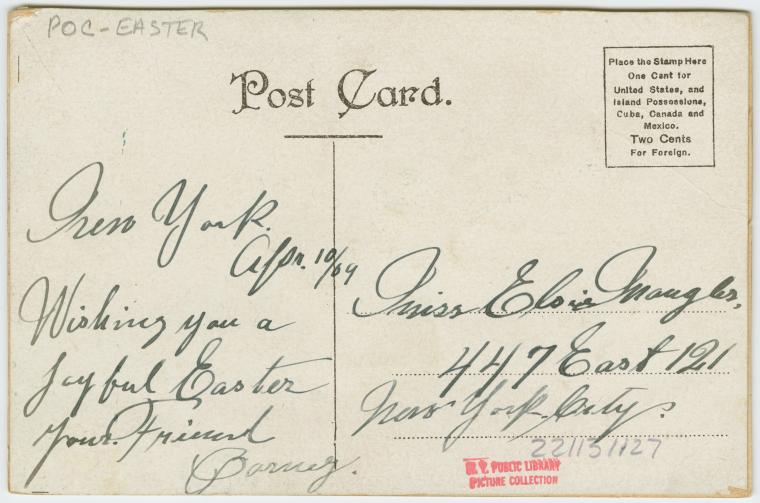 POC-EASTER
Post Card.
Place the Stamp Here
One Cent for
United States, and
Island Possessions,
Cuba, Canada and
Mexico.
Two Cents
For Foreign.
New York.
Apr. 10/09
Wishing you a
Joyful Easter
Your Friend
Barney.
Miss Elsie Mangler,
447 East 121
New York City.
N.Y. PUBLIC LIBRARY
PICTURE COLLECTION